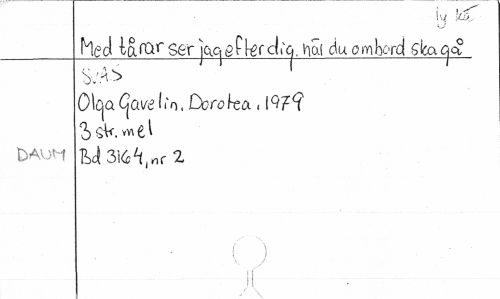 ly kä
Med tårar ser jag efter dig, när du ombord ska gå
S:AS
Olga Gavelin, Dorotea, 1979
3 str. mel
DAUM Bd 3164, nr 2